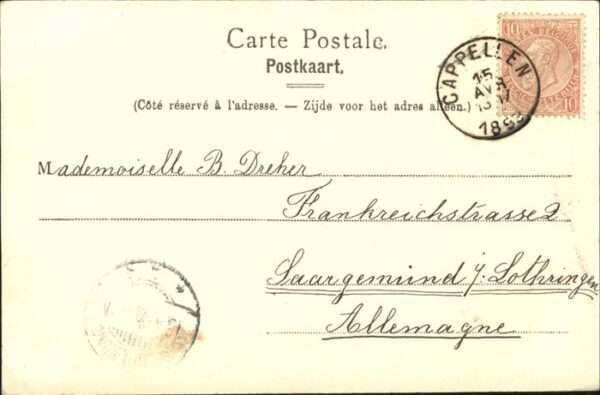 Carte Postale.
Postkaart.
(Côté réservé à l'adresse. — Zijde voor het adres alleen.)
CAPPELLEN
15
AVR
10
10
Mademoiselle B. Dreher
Frankreichstrasse 2
Saargemünd i/. Lothringen
Allemagne